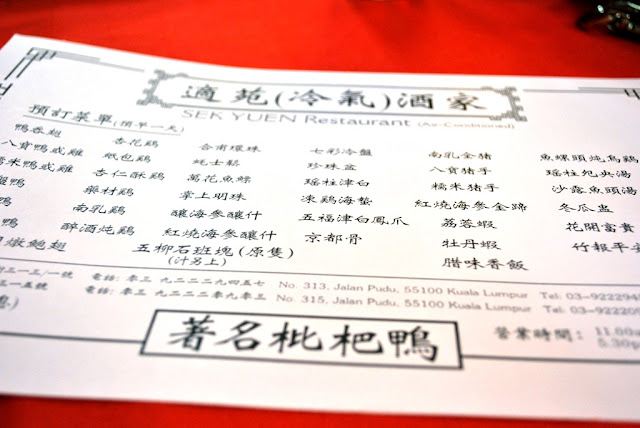 適苑(冷氣)酒家
SEK YUEN Restaurant (Air-Conditioned)
預訂菜單(預早一天)
鴨吞翅 杏花鷄 合甫環珠 七彩冷盤 南乳全猪 魚螺頭炖鳥鷄
八寶鴨或雞 紙包鷄 蚝士鬆 珍珠盆 八寶猪手 瑶柱湯
米鴨或雞 杏仁酥鷄 萬花魚鰾 瑶柱津白 糯米猪手 沙露魚頭湯
鴨 藥材鷄 掌上明珠 凍鷄海蜇 紅燒海參金蹄 冬瓜盅
鴨 南乳鷄 釀海參釀什 五福津白鳳爪 荔蓉蝦 花開富貴
燉鮑翅 醉酒炖鷄 紅燒海參釀什 京都骨 牡丹蝦 竹報平安
五柳石斑塊(原隻) 臘味香飯
(汁另上)
三一三/一號 電話: 零三 九二二二九四五七 No. 313, Jalan Pudu, 55100 Kuala Lumpur Tel: 03-92229
三一五號 電話: 零三 九二二二零九零三 No. 315, Jalan Pudu, 55100 Kuala Lumpur Tel: 03-92220
營業時間: 11.00
5.30p
著名枇杷鴨